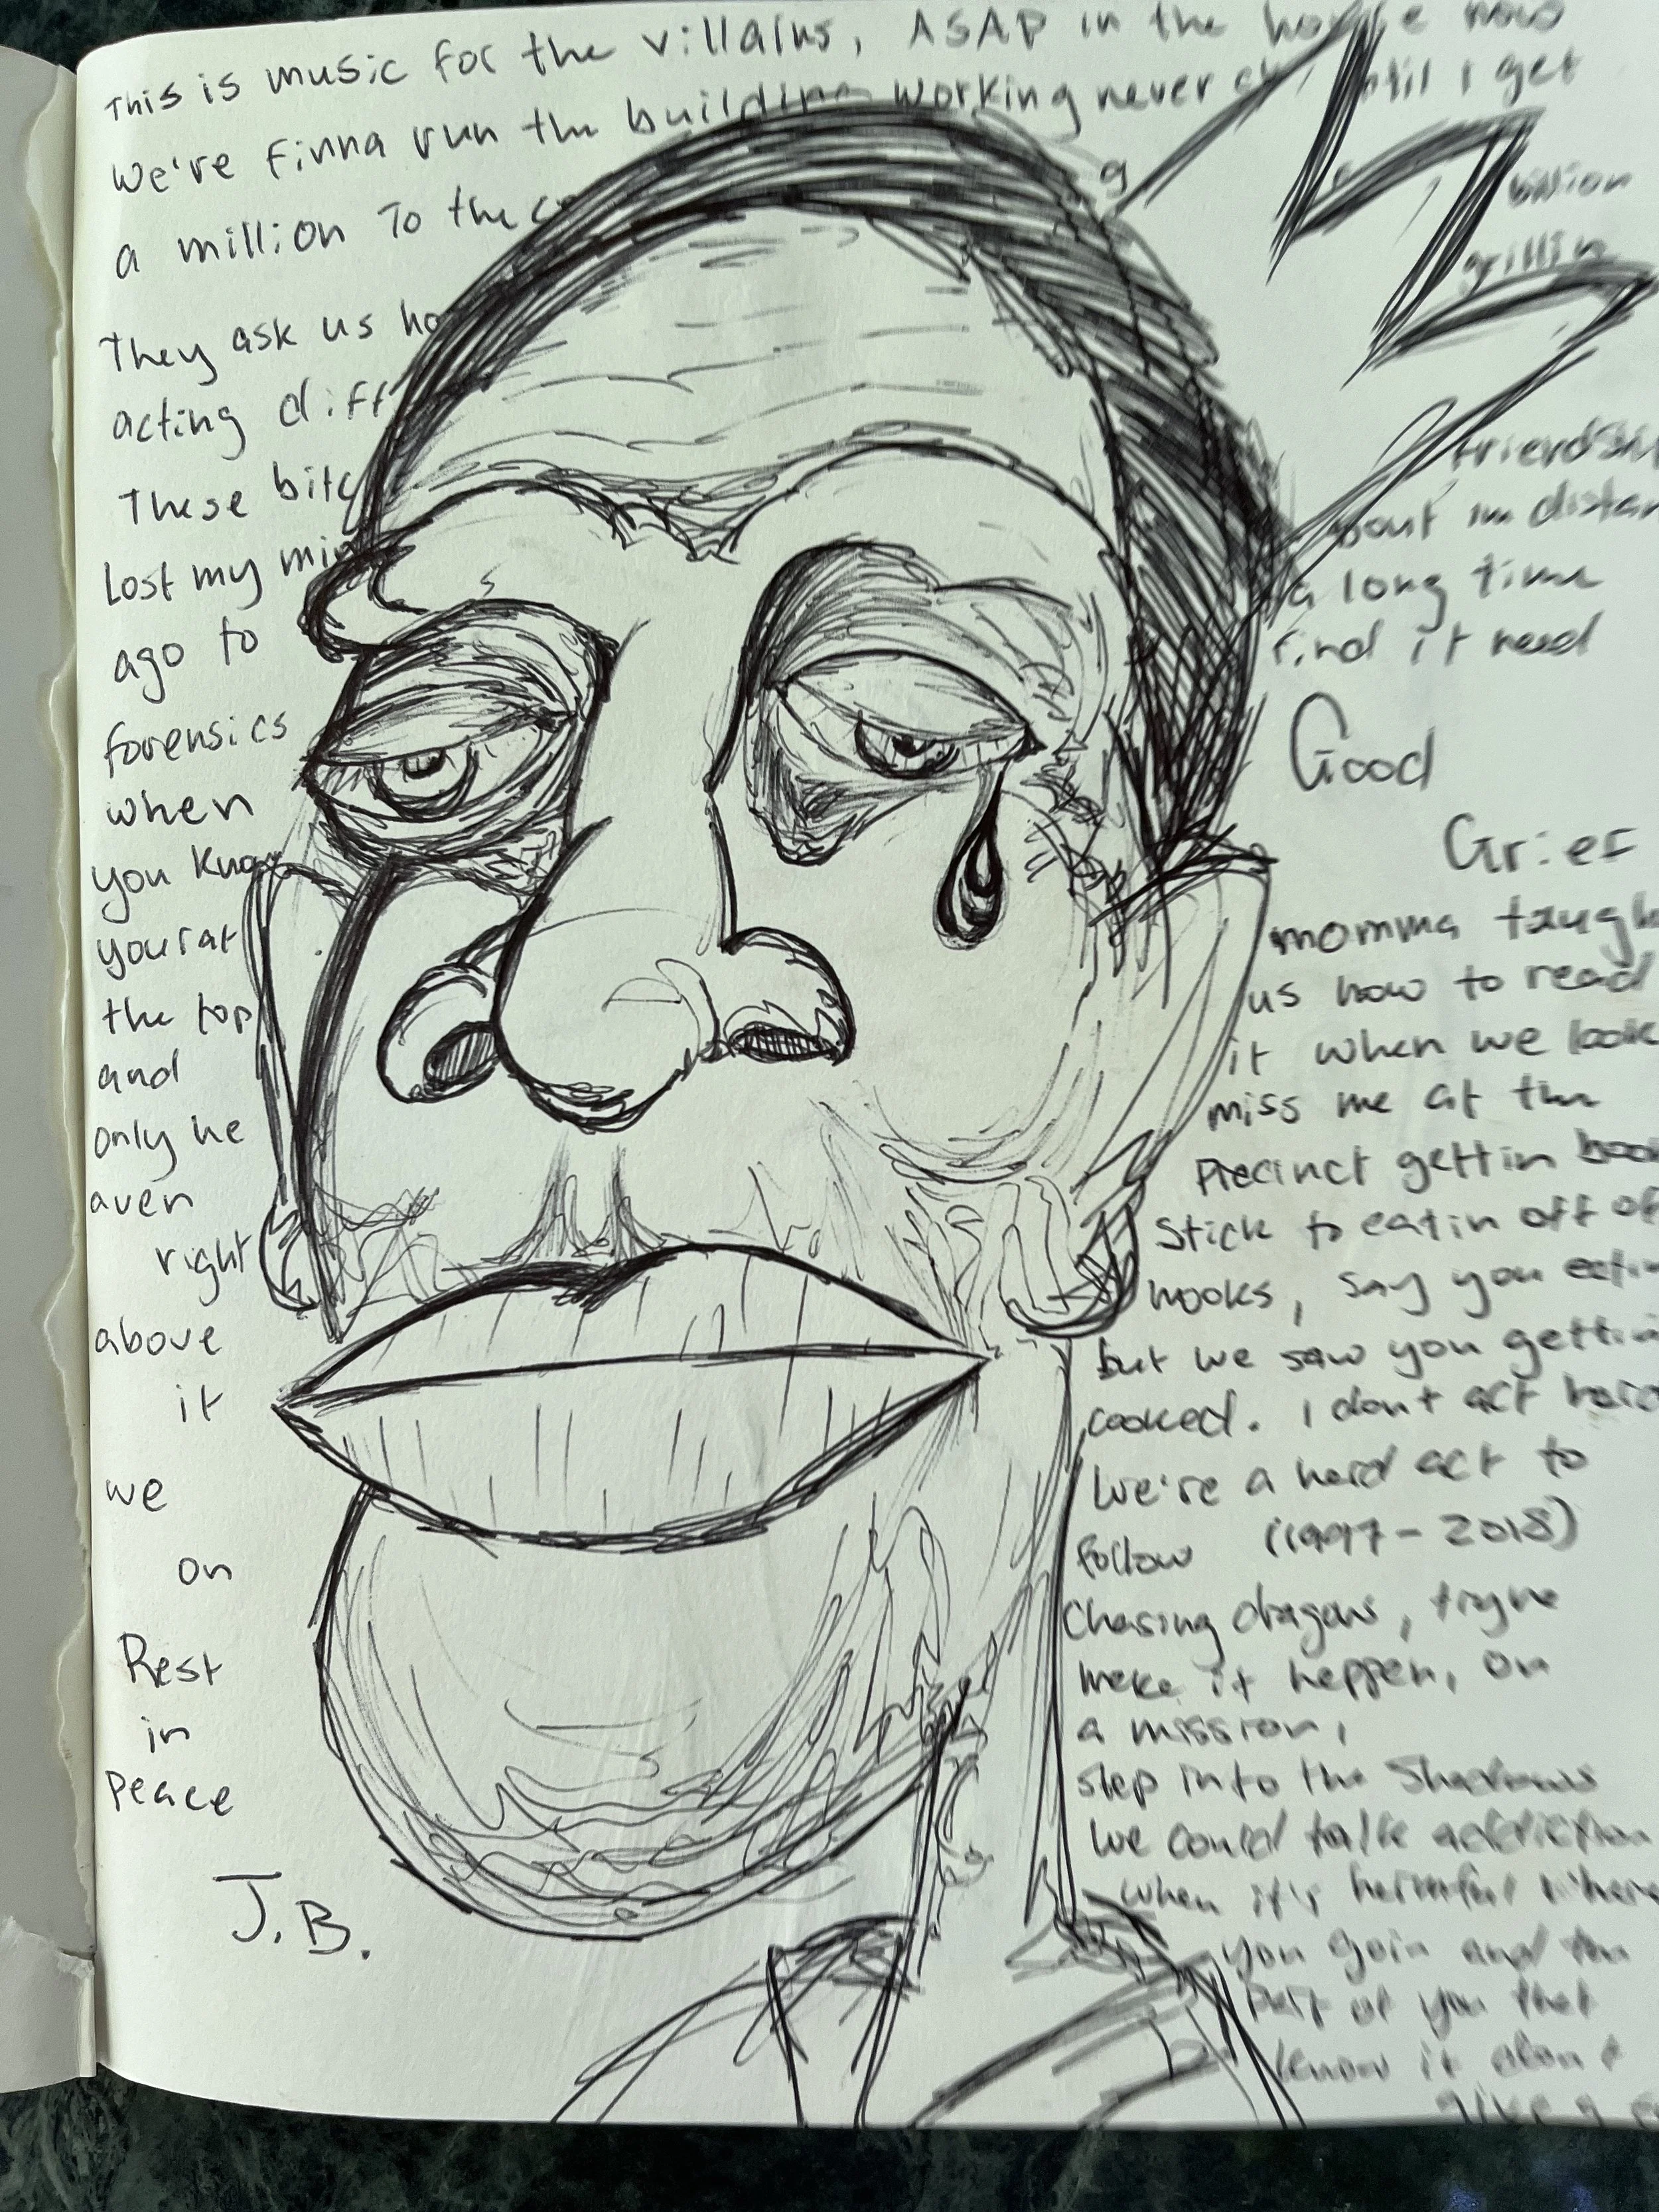 This is music for the villains, ASAP in the house now
We're finna run the building working never chill until I get
a million To the
g
billion
grillin
They ask us
acting
These
Lost my
ago to
forensics
when
you know
your at
the top
and
only he
aven
right
above
it
we
on
Rest
in
Peace
J.B.
bout im
a long time
find it need
Good
Grief
momma
us how to read
it when we look
miss me at the
Precinct gettin
Stick to eatin off of
hooks, say you
but we saw you
cooked. I don't act
We're a hard act to
follow (1997-2018)
Chasing dragons, tryne
make it happen, on
a mission,
step into the Shadows
We could talk addiction
when it's harmful where
you goin and the
part of you that
know it don't
give a